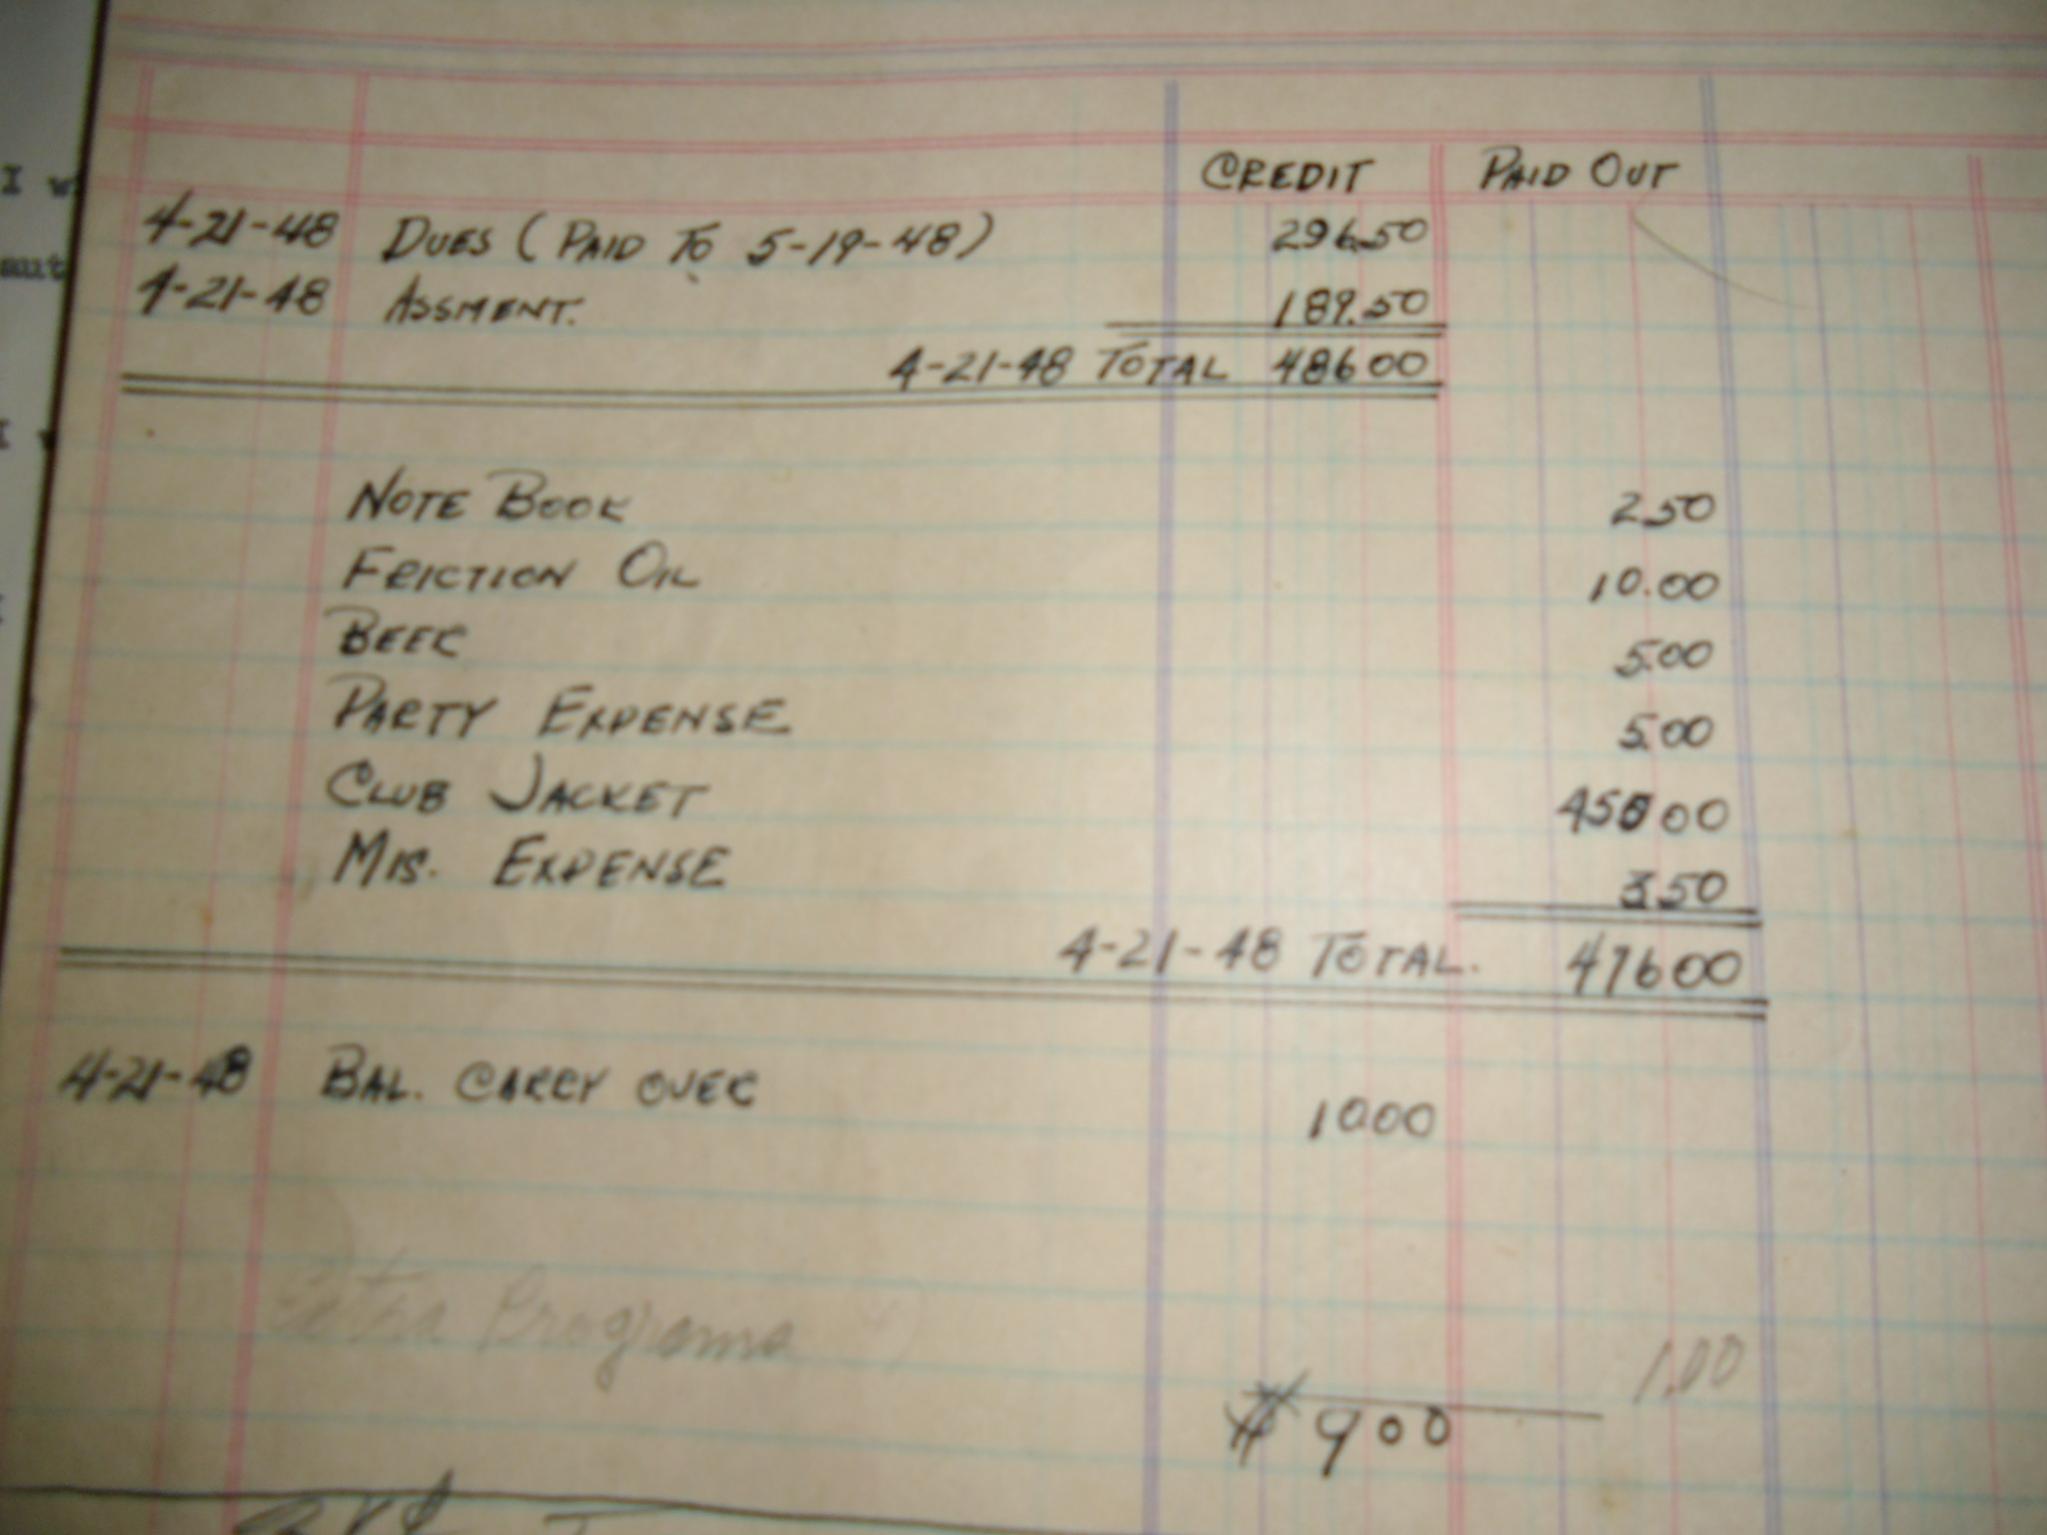 CREDIT PAID OUT
4-21-48 DUES (PAID TO 5-19-48) 296.50
4-21-48 ASSMENT. 189.50
4-21-48 TOTAL 486 00
NOTE BOOK 2.50
FRICTION OIL 10.00
BEER 5.00
PARTY EXPENSE 5.00
CLUB JACKET 450 00
MIS. EXPENSE 3.50
4-21-48 TOTAL. 476 00
4-21-48 BAL. CARRY OVER 10.00
Extra Programs 1.00
$ 9 00
I
I